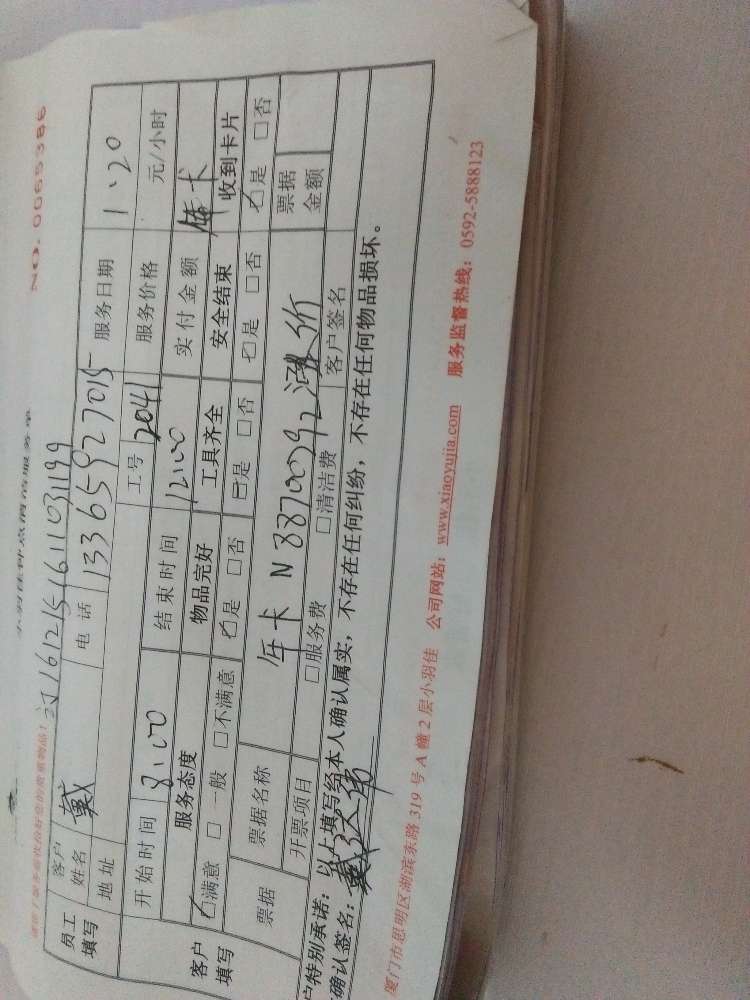 NO. 0065386
1612151611031199
员工填写 客户姓名 戴 电话 13365927015 服务日期 1、20
地址 工号 2041 服务价格 元/小时
客户填写 开始时间 8:00 结束时间 12:00 实付金额 年卡
服务态度 物品完好 工具齐全 安全结束 收到卡片
□满意 □一般 □不满意 □是 □否 □是 □否 □是 □否 □是 □否
票据 票据名称 年卡 N 88700292 票据金额
开票项目 □服务费 □清洁费 客户签名
户特别承诺:以上填写经本人确认属实,不存在任何纠纷,不存在任何物品损坏。
确认签名:戴
厦门市思明区湖滨东路 319 号 A 幢 2 层小羽佳 公司网站:www.xiaoyujia.com 服务监督热线:0592-5888123